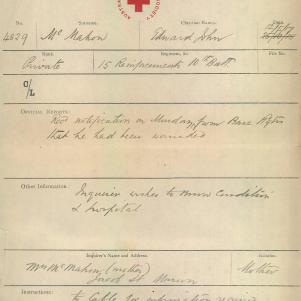 No. Surname. Christian Names. Date
4829 McMahon Edward John
Rank. Regiment, &c. File No.
Private 15 Reinforcements 10th Batt.
O/L
OFFICIAL REPORTS:
Recd notification on Monday from Base Rcds
that he had been wounded
Other Information:
Inquirer wishes to know condition
& hospital
Inquirer's Name and Address. Relation.
Mrs McMahon (mother) Mother
Jacob St.
Instructions:
to Cable for information